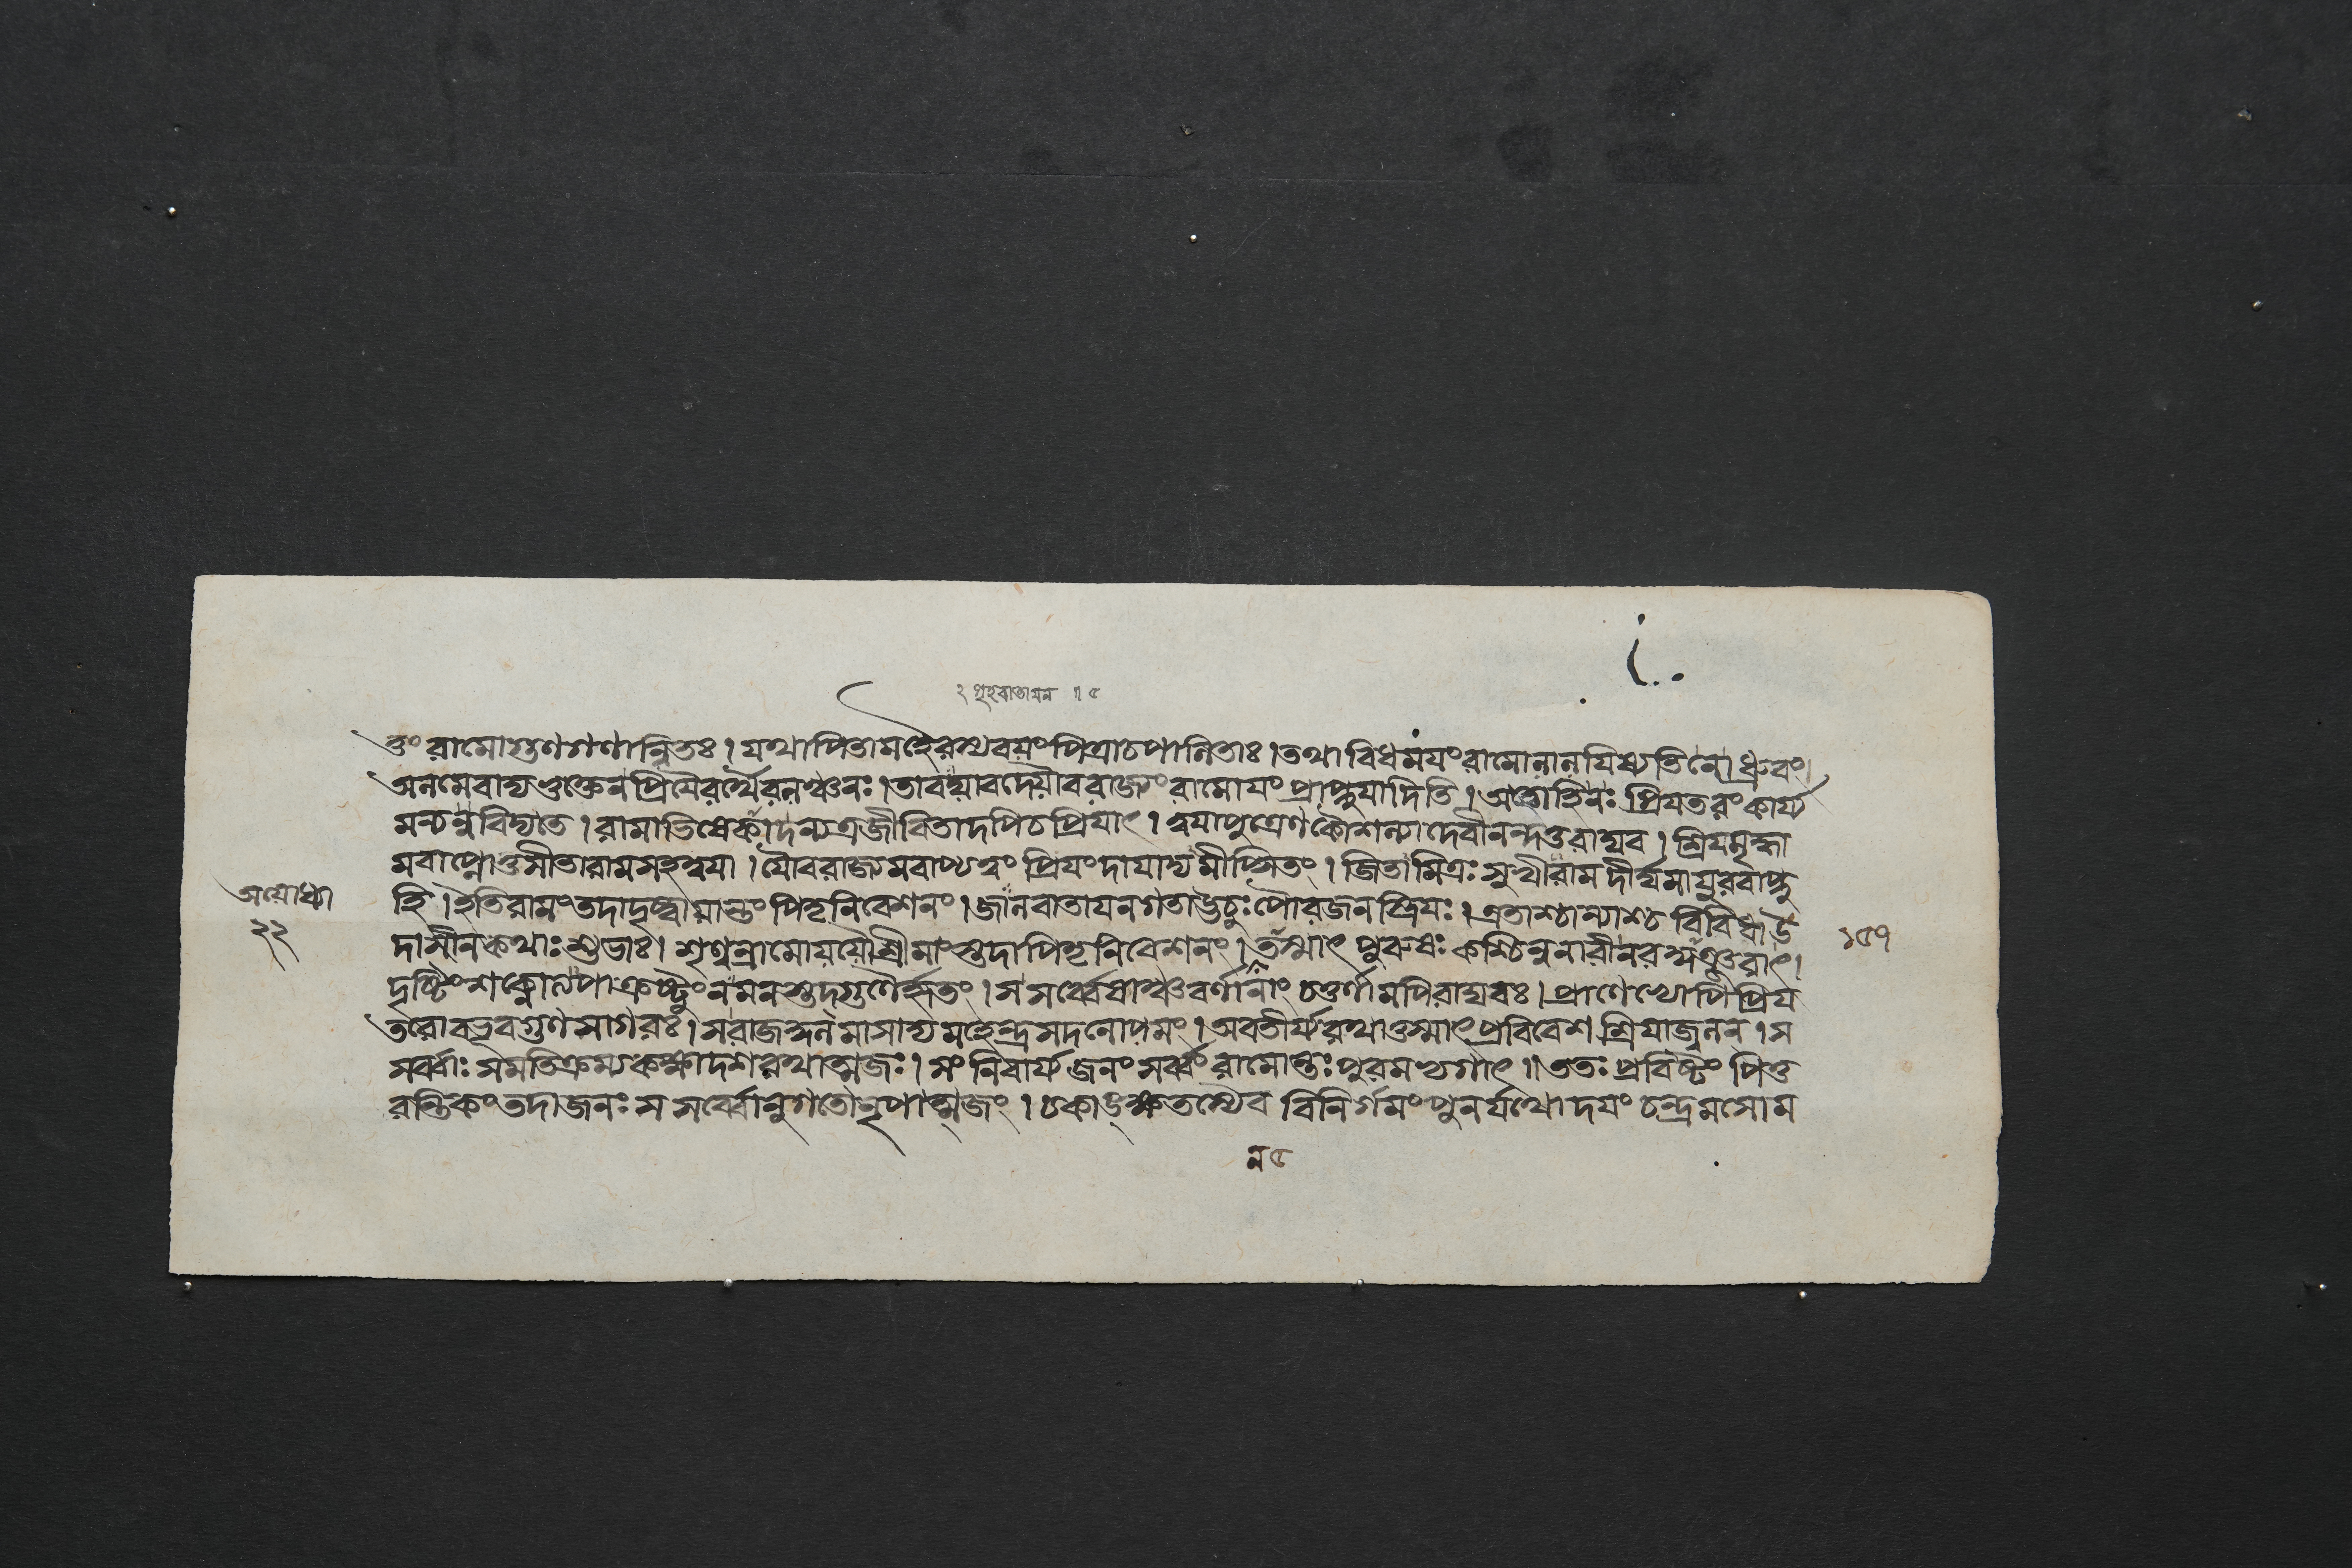 ২ গৃহবাতায়ন ॥ ৫
তুং রামোগুণগণান্বিতঃ। যথাপিতামহৈরথবয়ংপিত্রাচপালিতাঃ। তথাবিধময়ংরামোলালযিষ্যতিনোধ্রুবং।
অলমেবাদ্যভুক্তেনপ্রিয়ৈরর্থৈরলঞ্চনঃ। তাবদ্যাবদ্যৌবরাজ্যংরামোয়ংপ্রাপ্নুয়াদিতি। অতোহিনঃ প্রিয়তরংকার্য্য
মন্যন্নবিদ্যতে। রামাভিষেকাদন্যত্রজীবিতাদপিচপ্রিয়াৎ। ত্বয়াপুত্রেণকৌশল্যাদেবীনন্দতুরাঘব। শ্রিয়মৃদ্ধা
মবাপ্নোতুসীতারামসহত্বয়া। যৌবরাজ্যমবাপ্যত্বং প্রিয়ংদায়াদ্যমীপ্সিতং। জিতামিত্রঃ সুখীরামদীর্ঘমায়ুরবাপ্নু
হি। ইতিরামংতদাদৃষ্ট্বায়ান্তংপিতৃনিবেশনং। জালবাতায়নগতাঊচুঃপৌরজনস্ত্রিয়ঃ। এতাশ্চান্যাশ্চ বিবিধাউ
দাসীনকথাঃ শুভাঃ। শৃণ্বন্রামোযযৌশ্রীমাংস্তদাপিতৃনিবেশনং। তস্মাৎ পুরুষঃ কশ্চিন্ননারীনরর্ষভাতুরাৎ।
দৃষ্টিংশক্নোত্যপাক্রষ্টুংনমনস্তদ্গুণৈর্হৃতং। সসর্ব্বেষাঞ্চবর্ণানাং চতুর্ণামপিরাঘবঃ। প্রাণেভ্যোপিপ্রিয়
তরোবভূবগুণসাগরঃ। সরাজসদনমাসাদ্যমহেন্দ্রসদনোপমং। অবতীর্য্যরথাত্তস্মাৎপ্রবিবেশ শ্রিয়াজ্বলন্। স
সর্ব্বাঃ সমতিক্রম্যকক্ষ্যাদশরথাত্মজঃ। সংনিবার্য্যজনংসর্ব্বং রামোন্তঃপুরমভ্যগাৎ॥ ততঃ প্রবিষ্টং পিতু
রন্তিকংতদাজনঃ সসর্ব্বোনুগতোনৃপাত্মজং। চকাঙ্ক্ষতস্যৈব বিনির্গমংপুনর্যথোদয়ং চন্দ্রমসোম
অযোধ্যা
২২
১৫৭
ন ৫